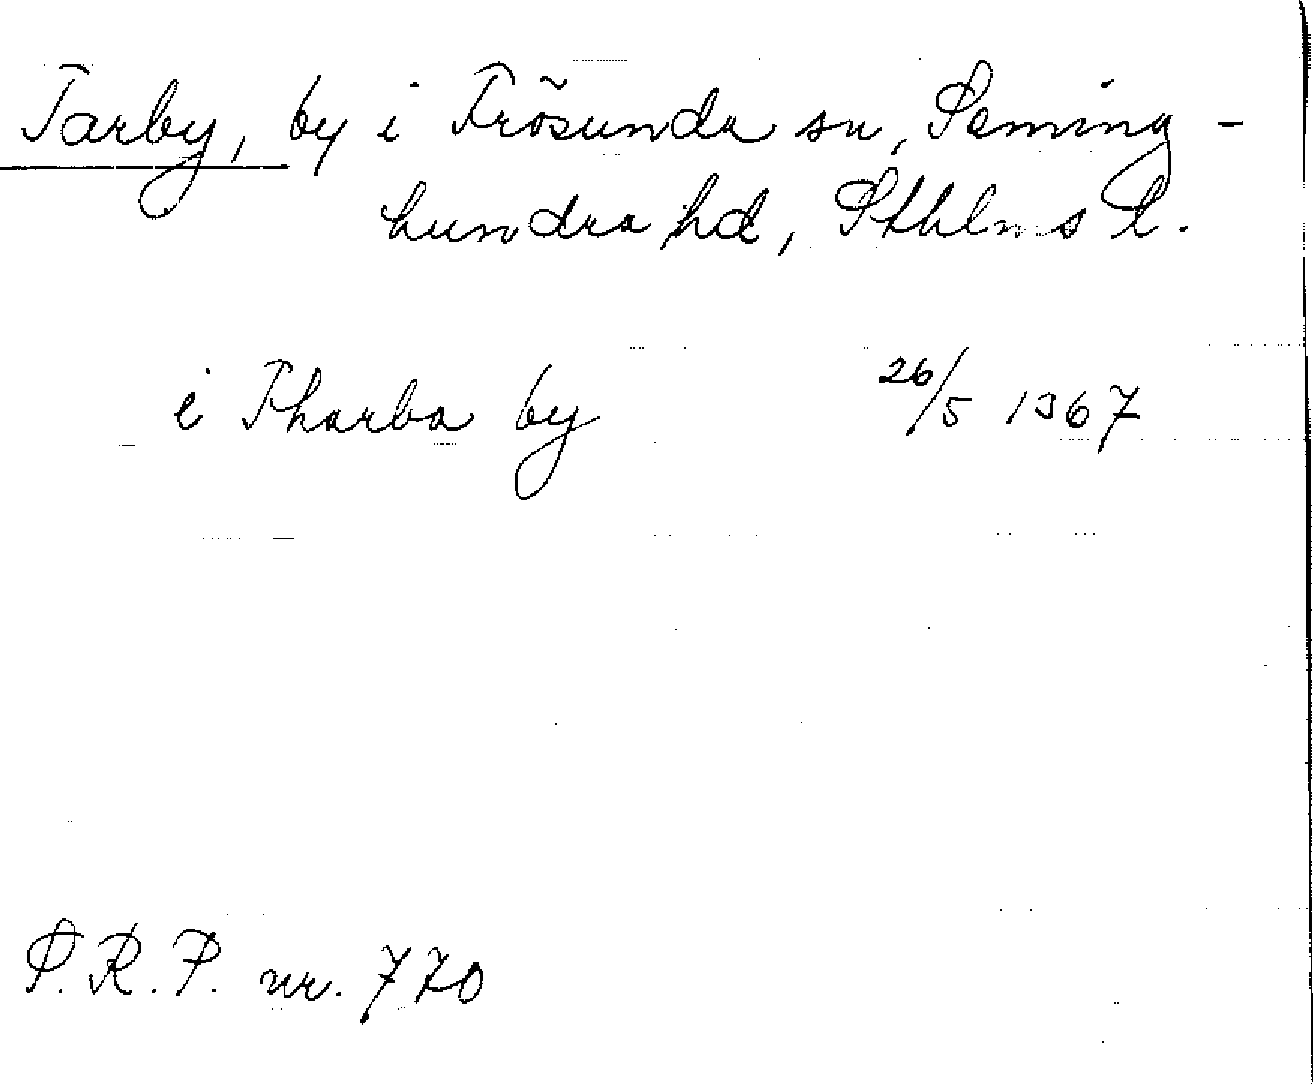 Tarby, by i Frösunda sn, Seming-
hundra hd, Sthlms l.
i Tharba by 26/5 1367
S.R.P. nr. 770